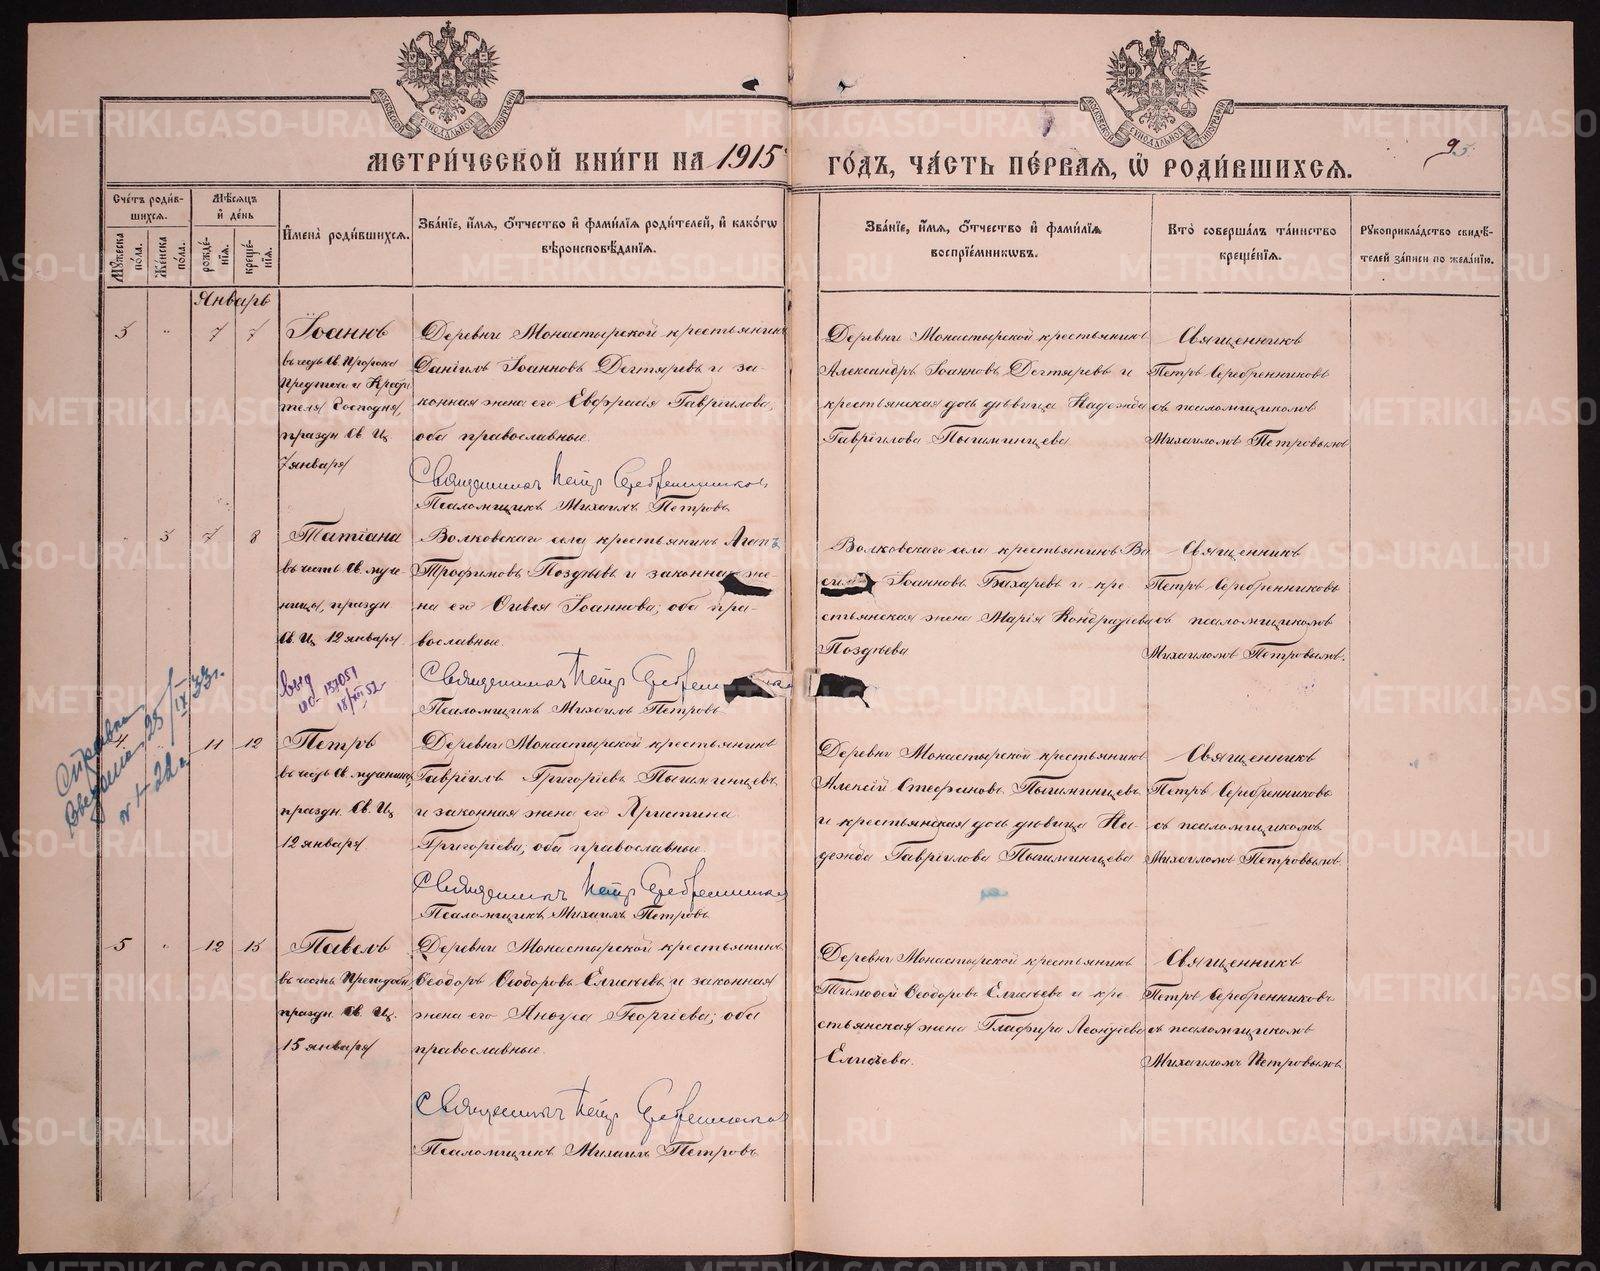 МЕТРИ́ЧЕСКОЙ КНИ́ГИ НА 1915
ГО́ДЪ, ЧА́СТЬ ПЕ́РВАЯ, Ѡ҆ РОДИ́ВШИХСЯ.
95
Сче́тъ роди́в-
шихся.
Му́жеска по́ла.
Же́нска по́ла.
Мѣ́сяцъ
и҆ де́нь
рожде́-
нїя.
креще́-
нїя.
И҆мена̀ роди́вшихся.
Зва́нїе, и҆́мя, ѻ҆́тчество и҆ фами́лїя роди́телей, и҆ како́гѡ
вѣроисповѣ́данїя.
Зва́нїе, и҆́мя, ѻ҆́тчество и҆ фами́лїя
воспрїе́мникѡвъ.
Кто̀ соверша́лъ та́инство
креще́нїя.
Рукоприкла́дство свидѣ́-
телей за́писи по жела́нїю.
Январь
3 " 7 7
Іоаннъ
въ честь Св. Пророка
Предтечи и Крести
теля Господня,
праздн Св Ц.
7 января
Деревни Монастырской крестьянинъ
Даніилъ Іоанновъ Дегтяревъ и за-
конная жена его Евфрасія Гавріилова,
оба православные.
Священникъ Петръ Серебренниковъ
Псаломщикъ Михаилъ Петровъ
Деревни Монастырской крестьянинъ
Александръ Іоанновъ Дегтяревъ и
крестьянская дочь дѣвица Надежда
Гавріилова Пышминцева
Священникъ
Петръ Серебренниковъ
съ псаломщикомъ
Михаиломъ Петровымъ
" 3 7 8
Татіана
въ честь Св. муче-
ницы, праздн
Св. Ц. 12 января
Волковскаго села крестьянинъ Агапъ
Трофимовъ Поздѣевъ и законная же-
на его Оливія Іоаннова; оба пра-
вославные.
Священникъ Петръ Серебренниковъ
Псаломщикъ Михаилъ Петровъ
Волковскаго села крестьянинъ Ва
силій Іоанновъ Бахаревъ и кре
стьянская жена Марія Кондратіева
Поздѣева
Священникъ
Петръ Серебренниковъ
съ псаломщикомъ
Михаиломъ Петровымъ.
18/XII 52
Справка
25/IX 33 г.
4. " 11 12
Петръ
въ честь Св. мученика,
праздн. Св. Ц
12 января
Деревни Монастырской крестьянинъ
Гавріилъ Григоріевъ Пышминцевъ
и законная жена его Христина
Григоріева; оба православные.
Священникъ Петръ Серебренниковъ
Псаломщикъ Михаилъ Петровъ
Деревни Монастырской крестьянинъ
Алексій Стефановъ Пышминцевъ
и крестьянская дочь дѣвица На-
дежда Гавріилова Пышминцева
Священникъ
Петръ Серебренниковъ
съ псаломщикомъ
Михаиломъ Петровымъ
5 " 12 15
Павелъ
въ честь Преподобн,
праздн. Св. Ц.
15 января
Деревни Монастырской крестьянинъ
Ѳеодоръ Ѳеодоровъ Елисѣевъ и законная
жена его Анфуса Георгіева; оба
православные.
Священникъ Петръ Серебренниковъ
Псаломщикъ Михаилъ Петровъ
Деревни Монастырской крестьянинъ
Тимофей Ѳеодоровъ Елисѣевъ и кре
стьянская жена Глафира Леонтіева
Елисѣева.
Священникъ
Петръ Серебренниковъ
съ псаломщикомъ
Михаиломъ Петровымъ
METRIKI.GASO-URAL.RU